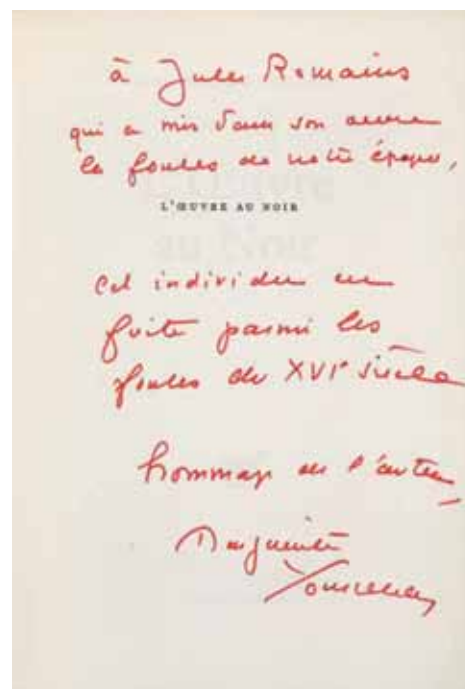 à Jules Romains
qui a mis dans son œuvre
les foules de notre époque,
L'ŒUVRE AU NOIR
cet individu en
fuite parmi les
foules du XVIe siècle
hommage de l'auteur
Marguerite
Yourcenar